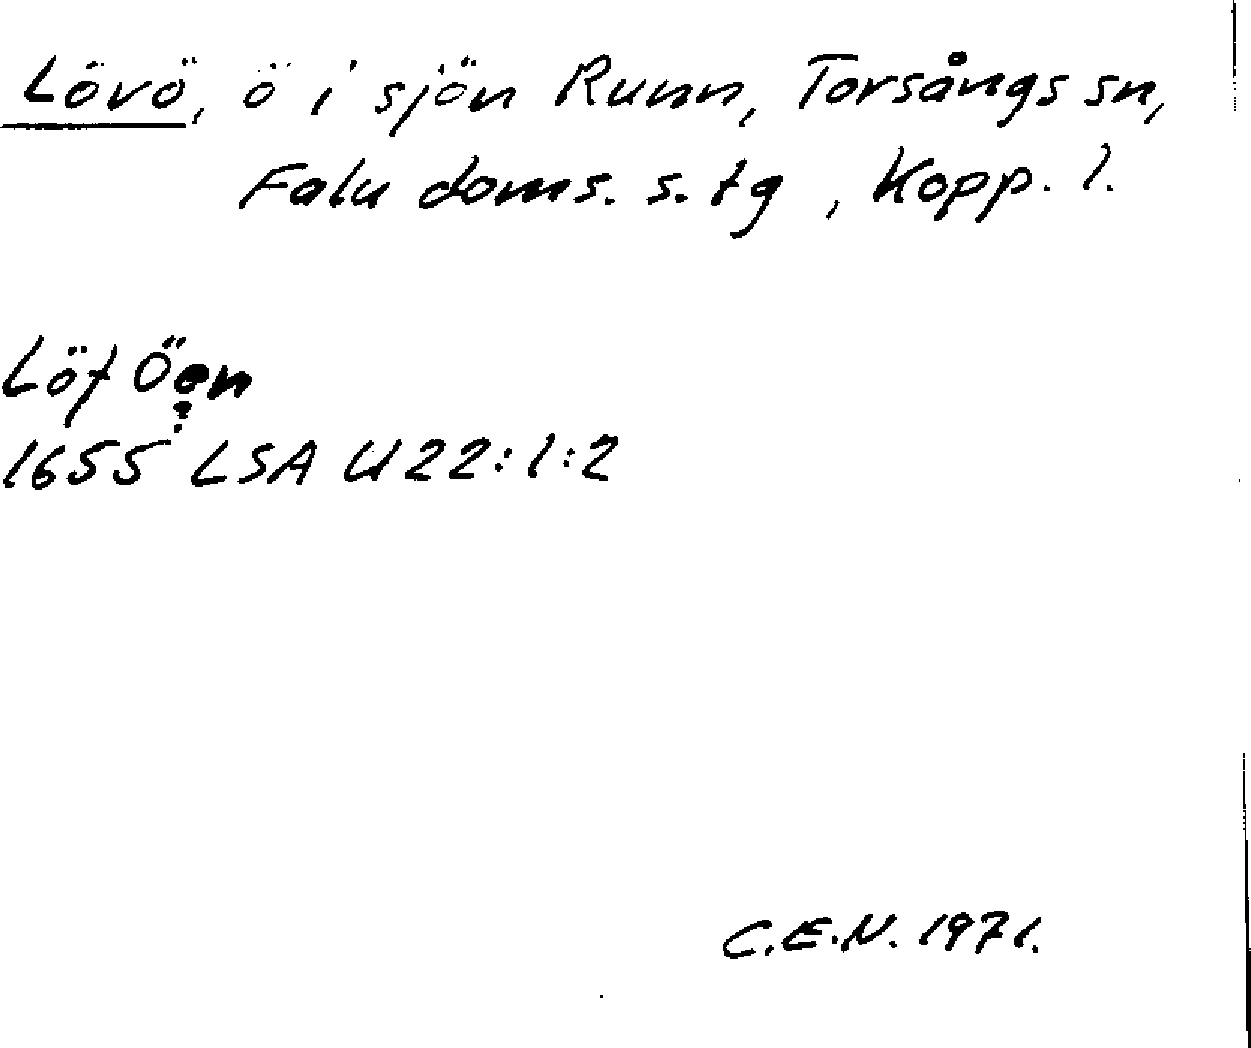 Lövö, ö i sjön Runn, Torsångs sn,
Falu doms. s. tg, Kopp. l.
Löf Öen
?
1655 LSA U22:1:2
C.E.N. 1971.